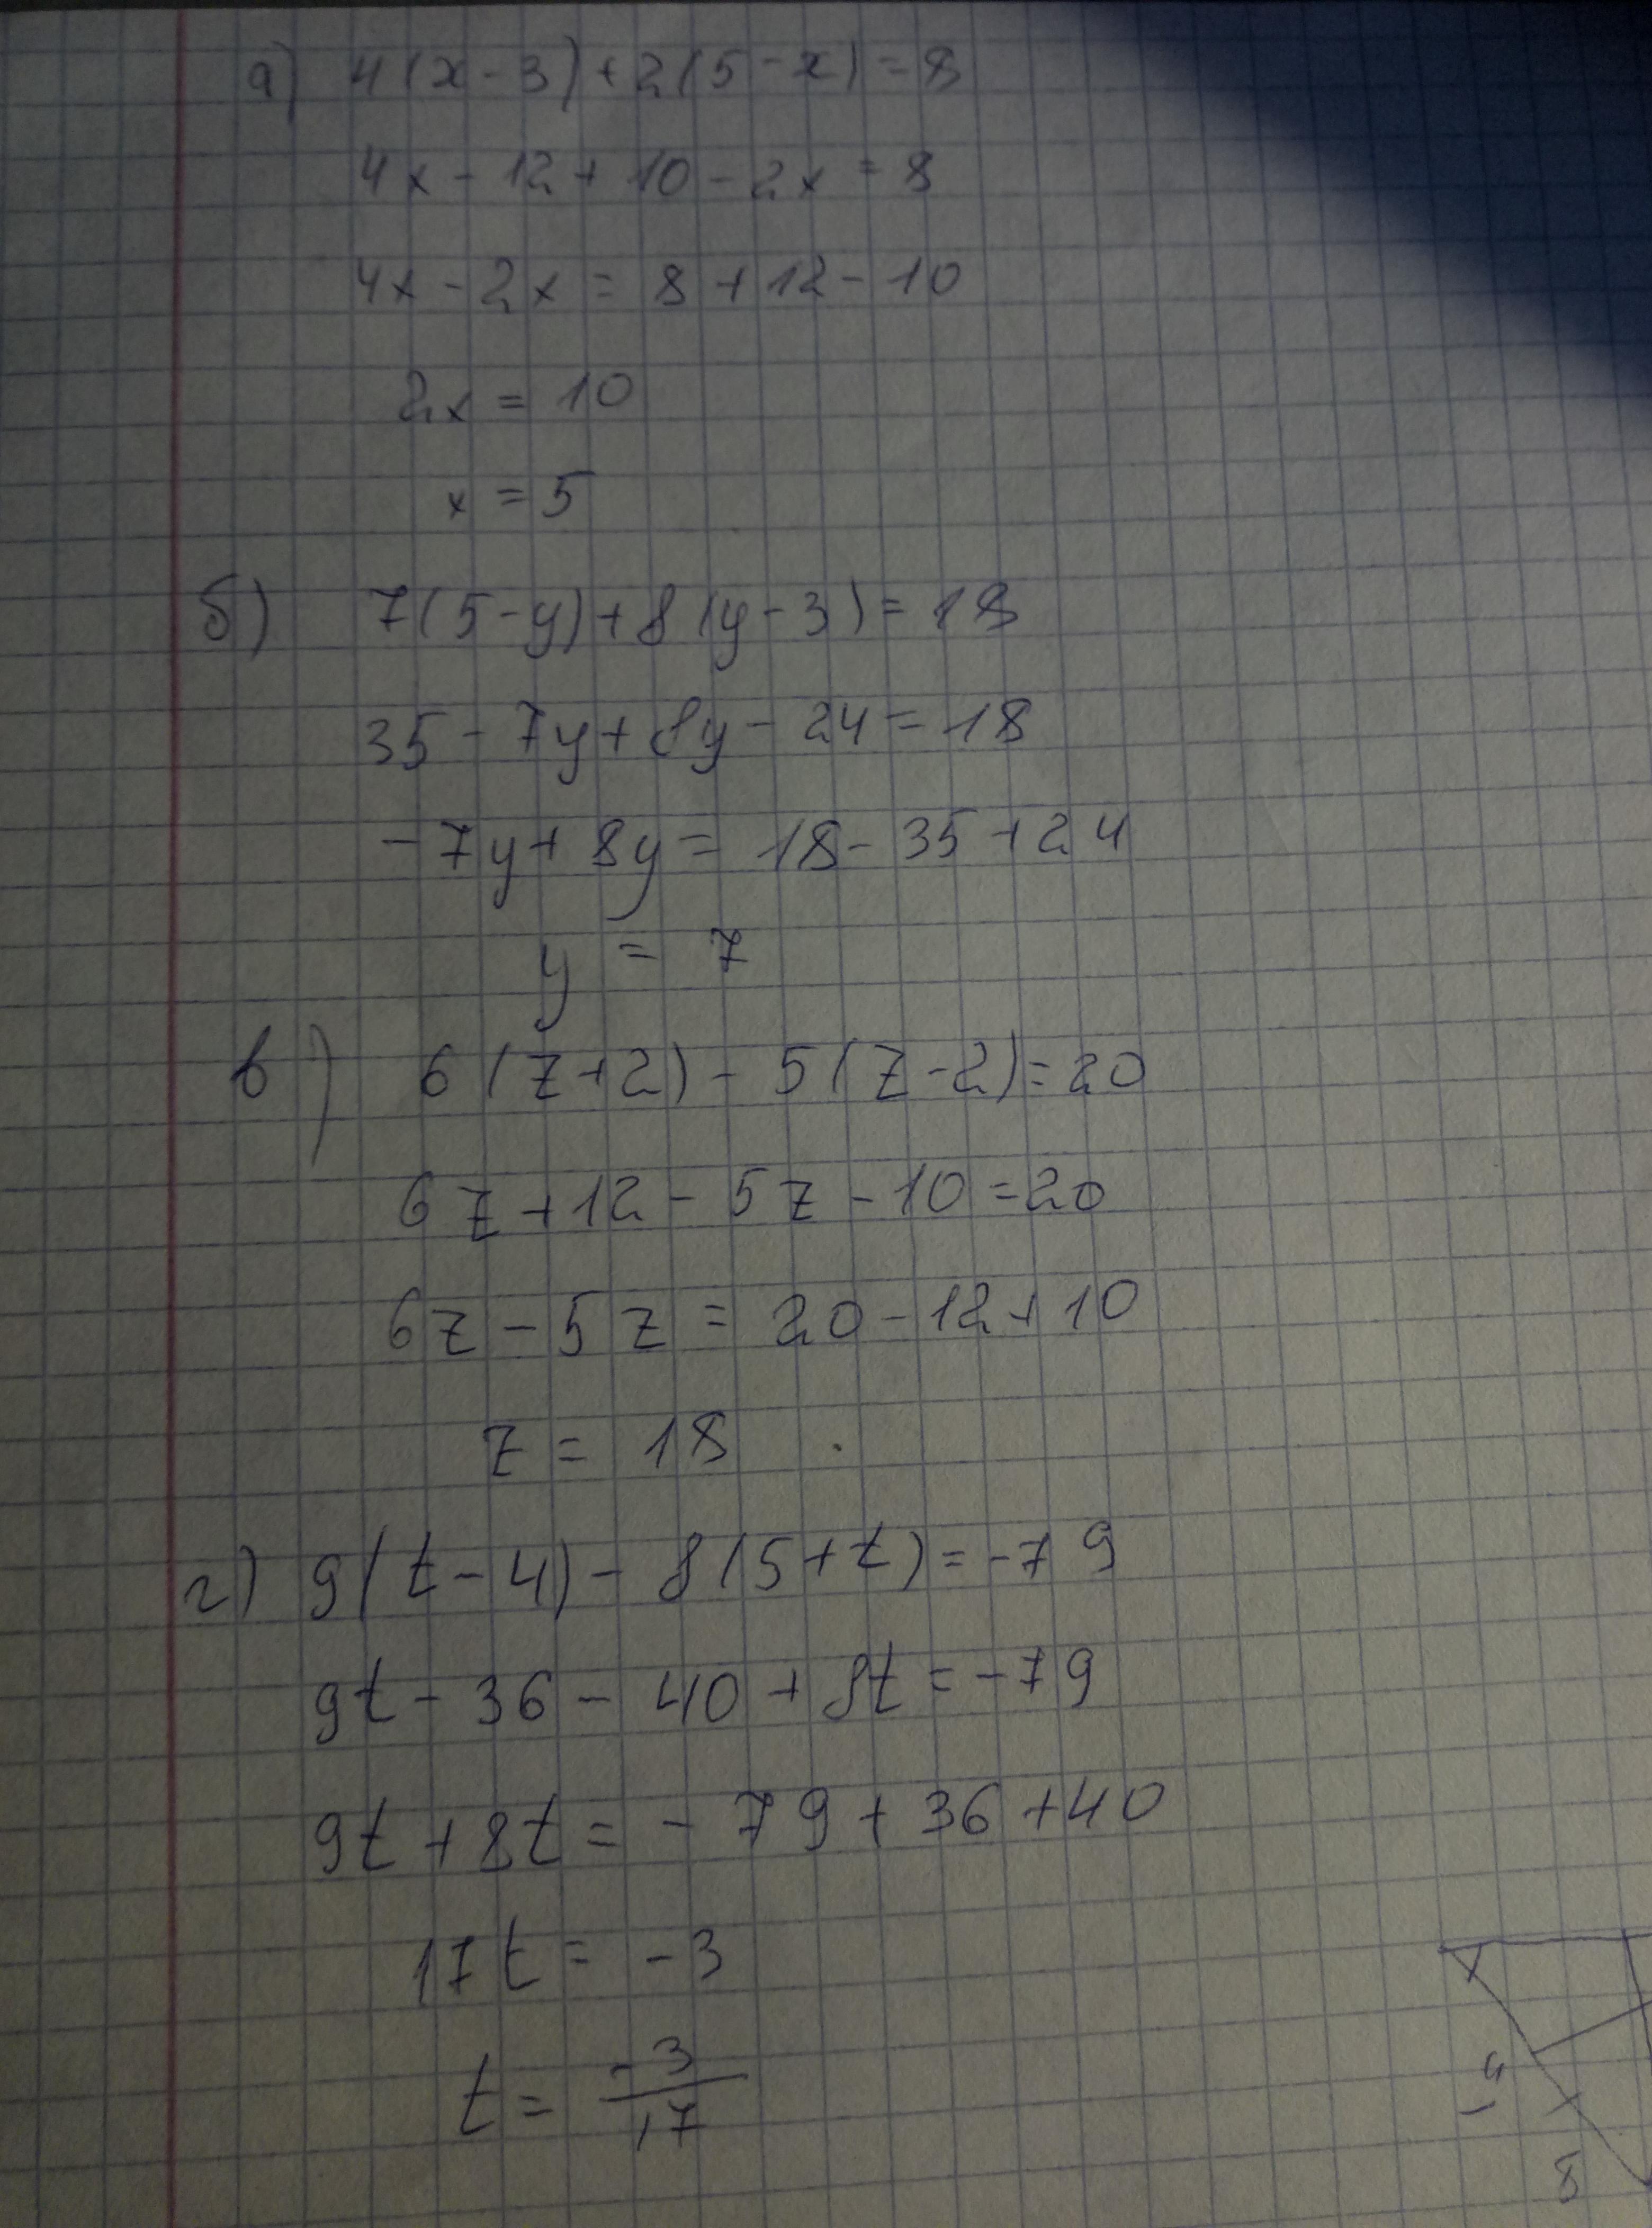 а) 4(x-3)+2(5-x)=8
4x-12+10-2x=8
4x-2x=8+12-10
2x=10
x=5
б) 7(5-y)+8(y-3)=18
35-7y+8y-24=18
-7y+8y=18-35+24
y=7
в) 6(z+2)-5(z-2)=20
6z+12-5z-10=20
6z-5z=20-12+10
z=18
г) 9(t-4)-8(5+t)=-79
9t-36-40+8t=-79
9t+8t=-79+36+40
17t=-3
t=-3/17